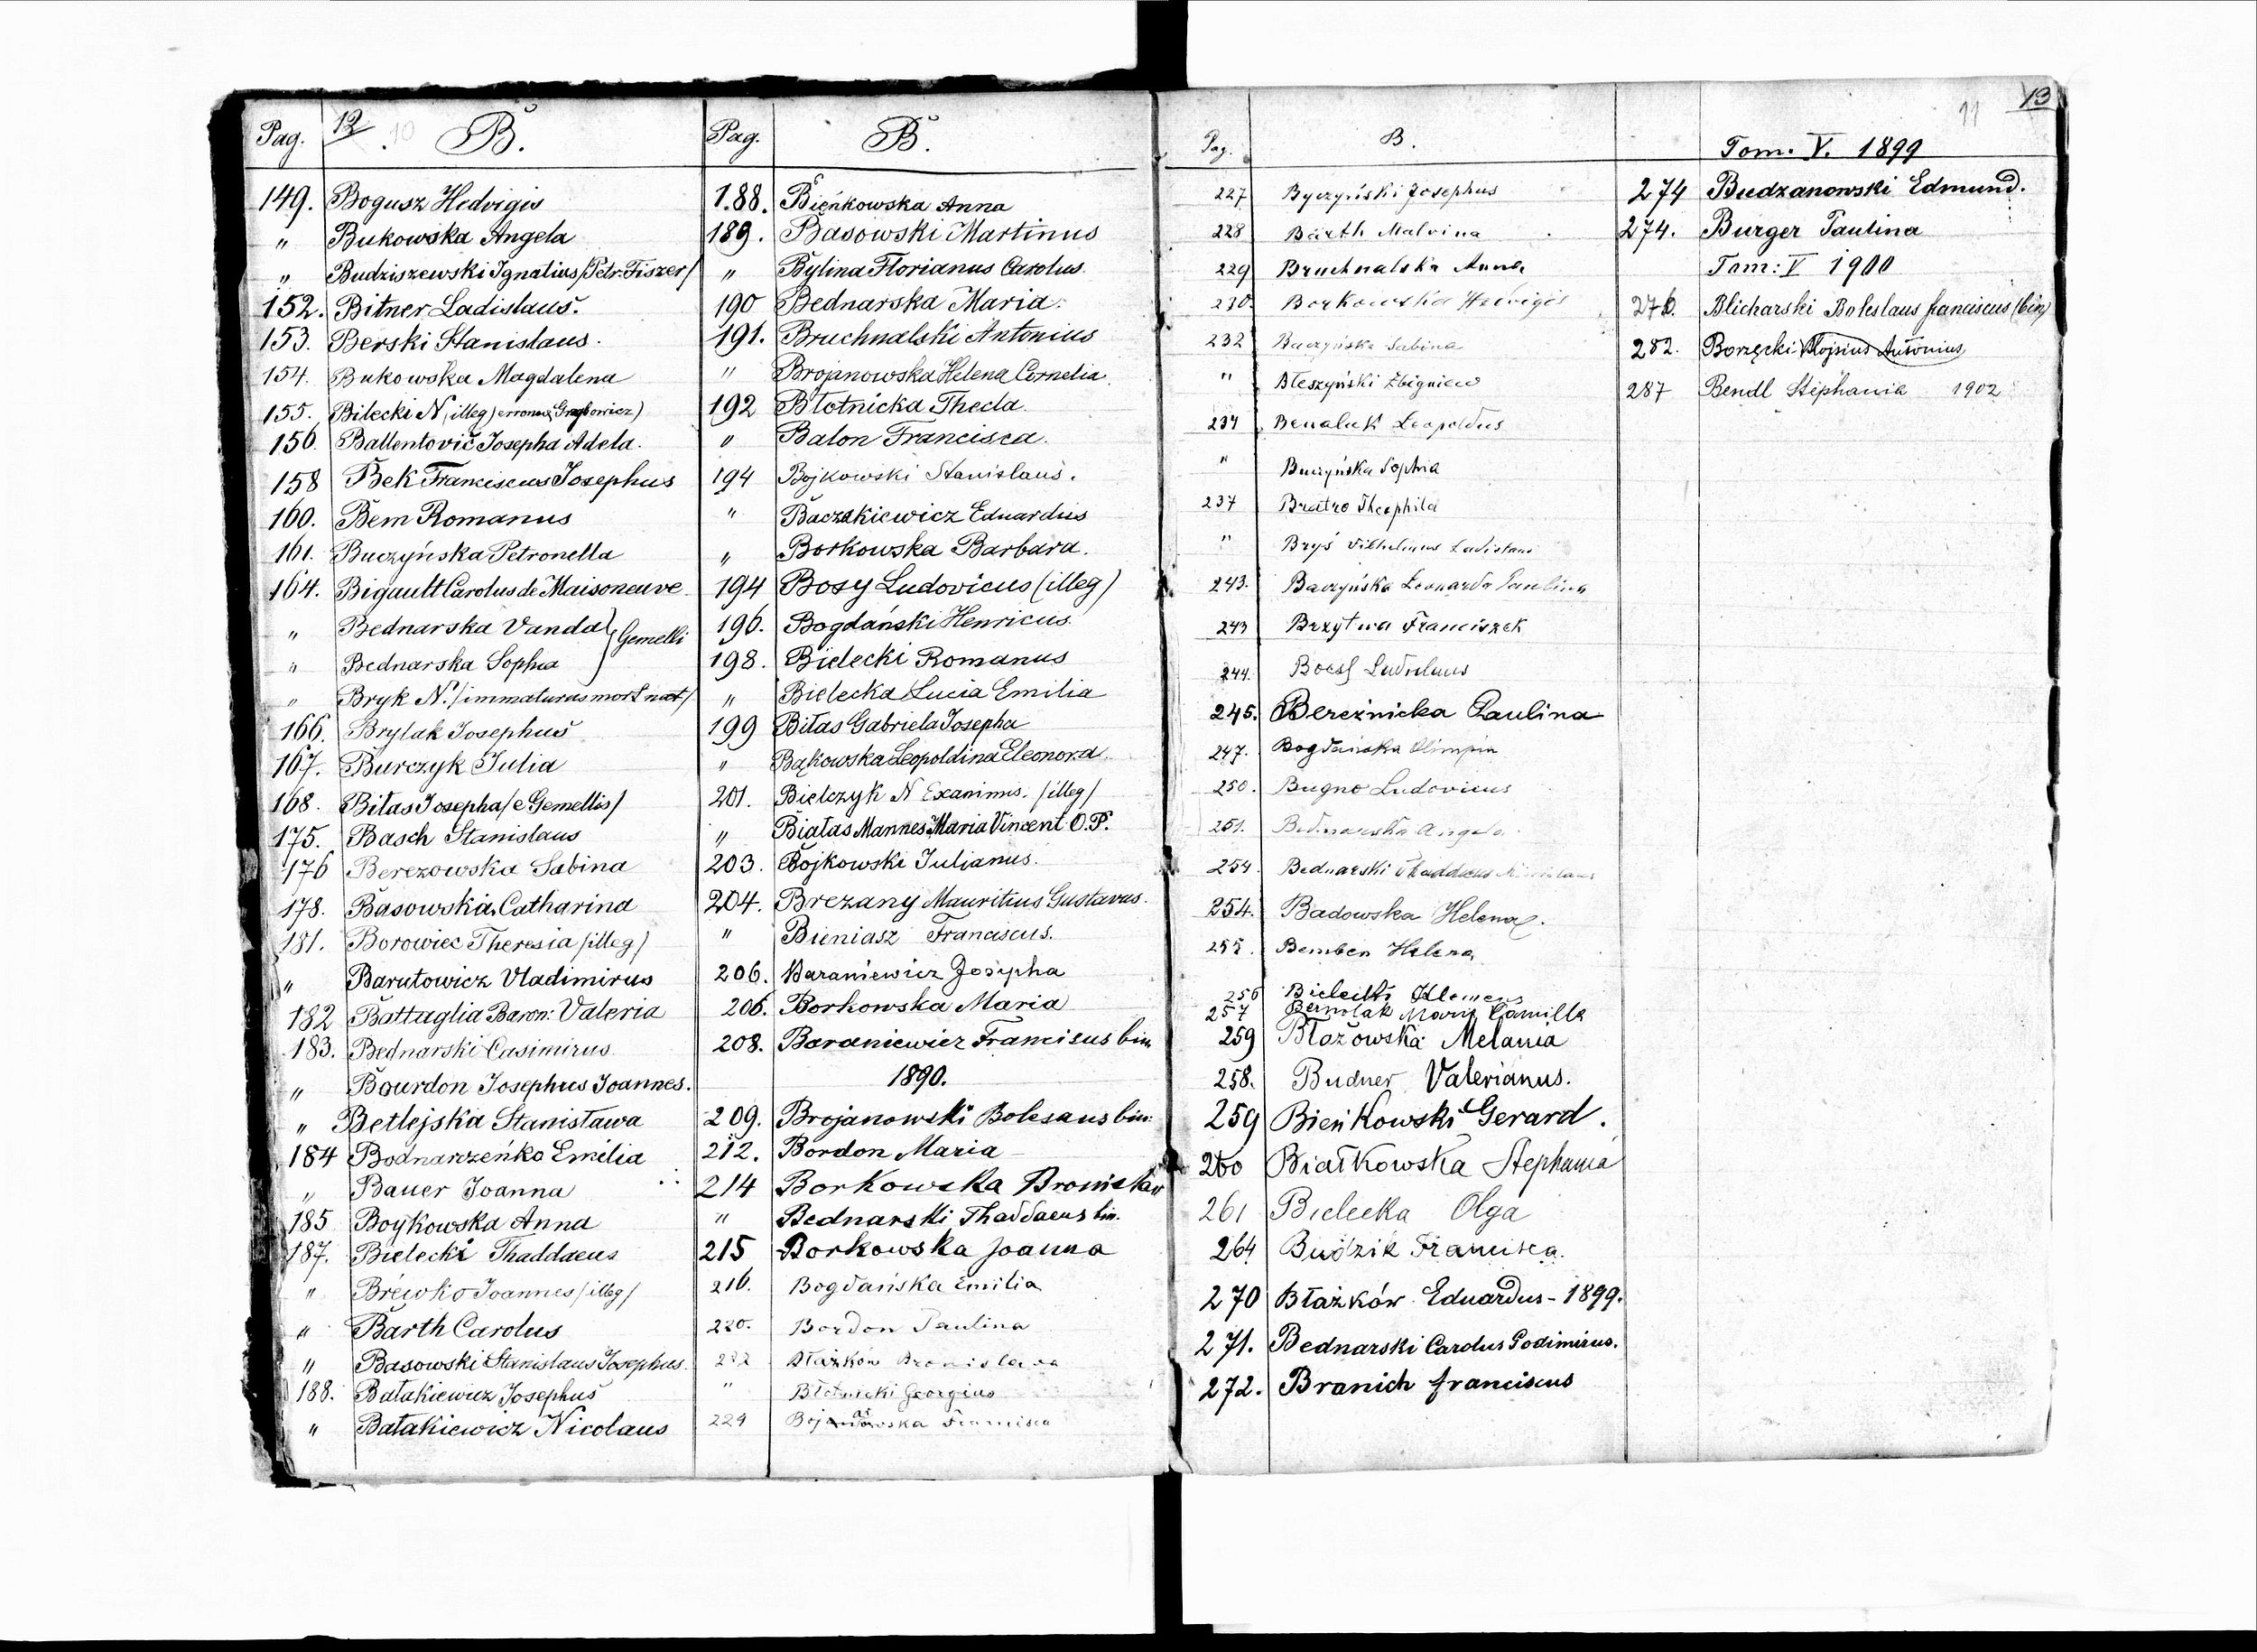 Pag. 12 10 B.
149. Bogusz Hedvigis
" Bukowska Angela
" Budziszewski Ignatius /Petr. Fiszer/
152. Bitner Ladislaus.
153. Berski Stanislaus.
154. Bukowska Magdalena
155. Bilecki N. (illeg) Grzybowicz)
156 Ballentovič Josepha Adela.
158 Bek Franciscus Josephus
160. Bem Romanus
161. Buczyńska Petronella
164. Bigault Carolus de Maisoneuve
" Bednarska Vanda } Gemelli
" Bednarska Sophia
" Bryk N. /immaturus mort nat/
166. Brylak Josephus
167. Burczyk Julia
168. Biłas Josepha /e Gemellis/
175. Basch Stanislaus
176 Berezowska Sabina
178. Basowska Catharina
181. Borowiec Theresia /illeg/
" Barutowicz Vladimirus
182 Battaglia Baron: Valeria
183. Bednarski Casimirus
" Bourdon Josephus Joannes.
" Betlejska Stanisława
184 Bodnarzeńko Emilia
" Bauer Joanna
185 Boykowska Anna
187. Bielecki Thaddaeus
" Brewko Joannes /illeg/
" Barth Carolus
" Basowski Stanislaus Josephus.
188. Bałakiewicz Josephus
" Bałakiewicz Nicolaus
Pag. B.
188. Bieńkowska Anna
189. Basowski Martinus
" Bylina Florianus Carolus.
190 Bednarska Maria
191. Bruchnalski Antonius
" Brojanowska Helena Cornelia
192 Błotnicka Thecla.
" Balon Francisca.
194 Bojkowski Stanislaus.
" Baczakiewicz Eduardus
" Borkowska Barbara.
194 Bosy Ludovicus (illeg)
196. Bogdański Henricus
198. Bielecki Romanus
" Bielecka Lucia Emilia
199 Biłas Gabriela Josepha
" Bąkowska Leopoldina Eleonora
201. Bielczyk N Exanimis. /illeg/
" Białas Mannes Maria Vincent O.P.
203. Bojkowski Julianus.
204. Brezany Mauritius Gustavus.
" Bieniasz Franciscus.
206. Baraniewicz Josepha
206. Borkowska Maria
208. Baraniewicz Franciscus bin
1890.
209. Brojanowski Bolesaus bin:
212. Bordon Maria
214 Borkowska Bronisław
" Bednarski Thaddaeus bin.
215 Borkowska Joanna
216. Bogdańska Emilia
220. Bordon Paulina
222 Błażków Bronislava
" Błotnicki Georgius
224 Francisca
Pag. B.
227 Byczyński Josephus
228 Barth Malvina
229 Bruchnalska Anna
230. Borkowska Hedvigis
232 Buczyńska Sabina
" Błeszyński Zbigniew
234 Benaluk Leopoldus
" Buczyńska Sophia
237 Bratro Theophila
" Bryś Vilhelmus Ladislaus
243. Baczyńska Leonarda Paulina
243 Brzytwa Franciszek
244. Ladislaus
245. Bereżnicka Paulina
247. Bogdańska Olimpia
250. Bugno Ludovicus
251. Bednarska Angela
254. Bednarski Thaddaeus
254. Badowska Helena.
255. Bemben Helena
256 Bielecki Klemens
257 Bernolak Maria Camilla
259 Błażowska Melania
258. Budner Valerianus.
259 Bieńkowski Gerard.
260 Białkowska Stephania
261 Bielecka Olga
264 Budzik Francisca.
270 Błażków Eduardus - 1899.
271. Bednarski Carolus Godimirus.
272. Branich franciscus
11 13
Tom. V. 1899
274 Budzanowski Edmund.
274. Burger Paulina
Tom: V 1900
276. Blicharski Boleslaus franciscus (bin)
282. Borzęcki Alojsius Antonius
287 Bendl Stephania 1902